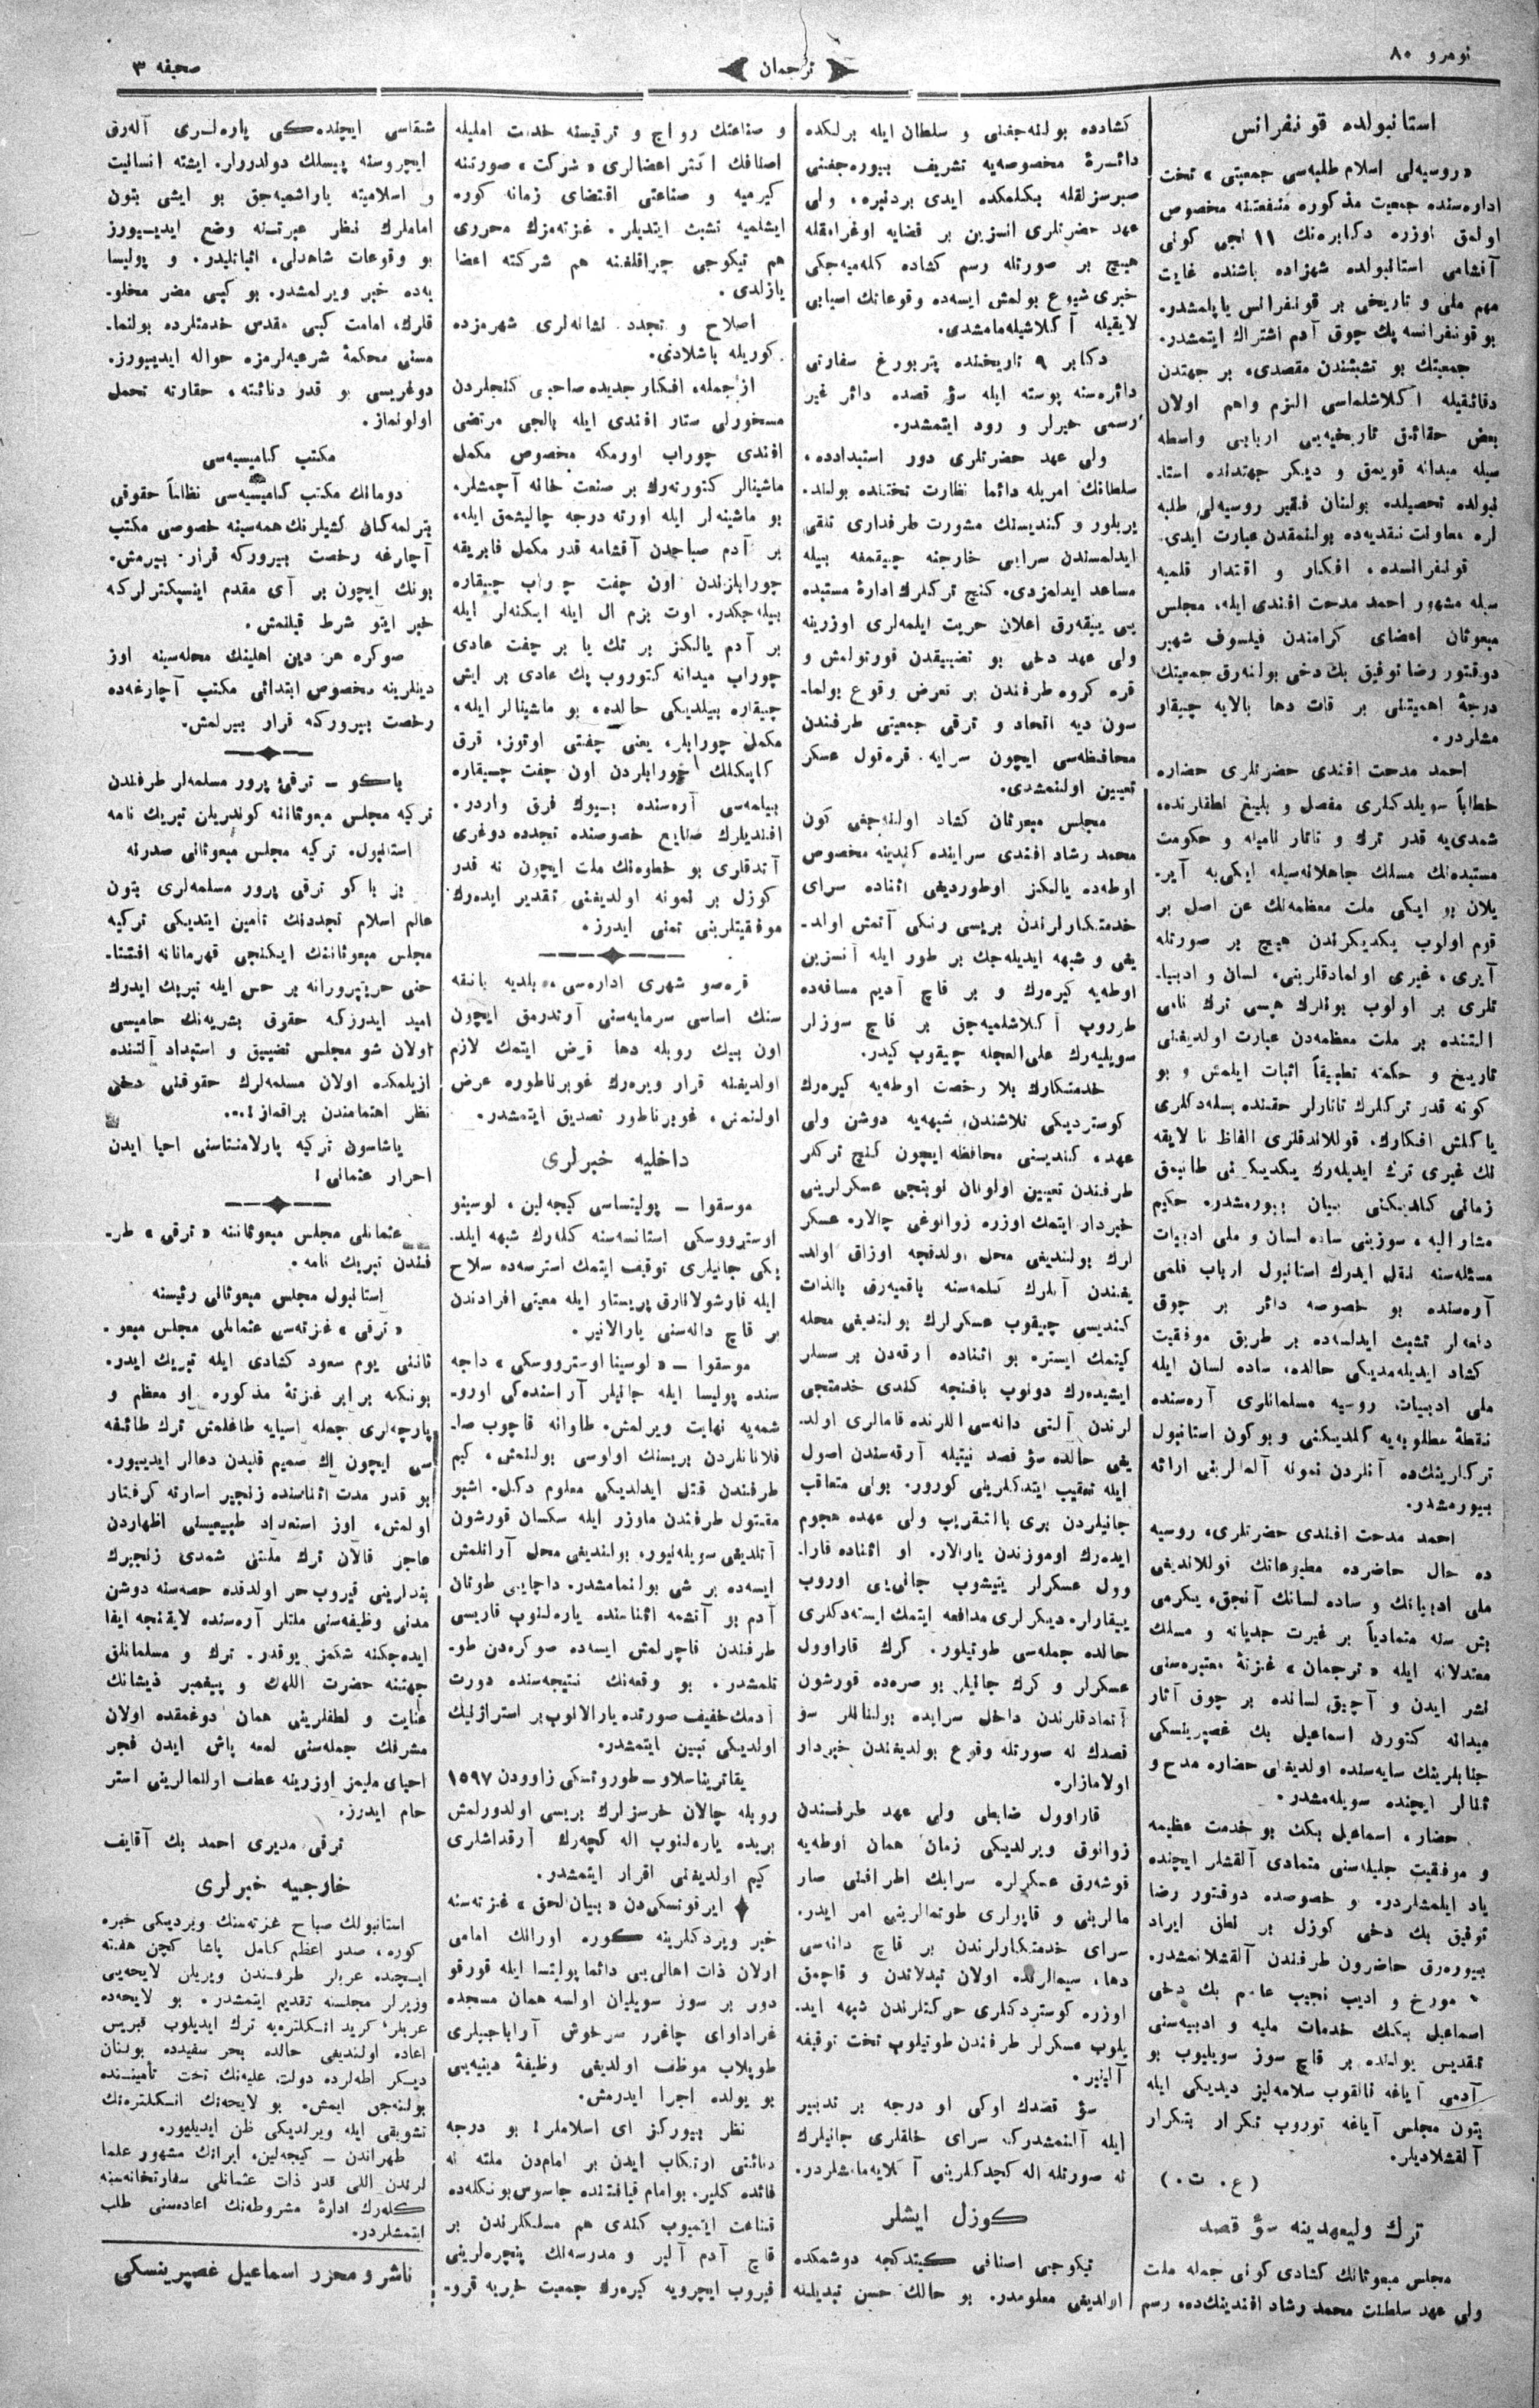 نومرو ۸۰
ترجمان
صحیفه ۳
استانبولده قونفرانس
«روسیه‌لی اسلام طلبه‌سی جمعیتی» تحت
اداره‌سنده جمعیت مذکوره منفعتنه مخصوص
اولمق اوزره دکابره‌نك ۱۱ نجی کونی
آقشامی استانبولده شهزاده باشنده غایت
مهم ملی و تاریخی بر قونفرانس یاپلمشدر.
بو قونفرانسه پك چوق آدم اشتراك ایتمشدر.
جمعیتك بو تشبثندن مقصدی، بر جهتدن
دقائقیله آکلاشلماسی الزم واهم اولان
بعض حقائق تاریخیه‌یی اربابی واسطه
سیله میدانه قویمق و دیکر جهتدنده استا-
نبولده تحصیلده بولنان فقیر روسیه‌لی طلبه
لره معاونت نقدیه‌ده بولنمقدن عبارت ایدی.
قونفرانسده، افکار و اقتدار قلمیه
سیله مشهور احمد مدحت افندی ایله، مجلس
مبعوثان اعضای کرامندن فیلسوف شهیر
دوقتور رضا توفیق بك دخی بولنه‌رق جمعیتك
درجهٔ اهمیتنی بر قات دها بالایه چیقار
مشلردر.
احمد مدحت افندی حضرتلری حضاره
خطاباً سویلدکلری مفصل و بلیغ نطقلرنده،
شمدی‌یه قدر ترك و تاتار نامیله و حکومت
مستبده‌نك مسلك جاهلانه‌سیله ایکی‌یه آیر-
یلان بو ایکی ملت معظمه‌نك عن اصل بر
قوم اولوب یکدیکرندن هیچ بر صورتله
آیری، غیری اولمادقلرینی، لسان و ادبیا-
تلری بر اولوب بونلرك هپسی ترك نامی
التنده بر ملت معظمه‌دن عبارت اولدیغنی
تاریخ و حکمته تطبیقاً اثبات ایلمش و بو
کونه قدر ترکلرك تاتارلر حقنده بسله‌دکلری
یاکلش افکارك، قوللاندقلری الفاظ نا لایقه
نك غیری ترك ایدیله‌رك یکدیکرینی طانیمق
زمانی کلدیکنی بیان بیورمشدر. حکیم
مشارالیه، سوزینی ساده لسان و ملی ادبیات
مسئله‌سنه نقل ایدرك استانبول ارباب قلمی
آره‌سنده بو خصوصه دائر بر چوق
دفعه‌لر تشبث ایدلسه‌ده بر طریق موفقیت
کشاد ایدیله‌مدیکی حالده، ساده لسان ایله
ملی ادبیات، روسیه مسلمانلری آره‌سنده
نقطهٔ مطلوبه‌یه کلدیکنی و بوکون استانبول
ترکلرینك‌ده آنلردن نمونه آلمالرینی ارائه
بیورمشدر.
احمد مدحت افندی حضرتلری، روسیه
ده حال حاضرده مطبوعاتك قوللاندیغی
ملی ادبیاتك و ساده لسانك آنجق، یکرمی
بش سنه متمادیاً بر غیرت جدیانه و مسلك
معتدلانه ایله «ترجمان» غزتهٔ معتبره‌سنی
نشر ایدن و آچیق لسانده بر چوق آثار
میدانه کتورن اسماعیل بك غصپرینسکی
جنابلرینك سایه‌سنده اولدیغنی حضاره مدح و
ثنالر ایچنده سویله‌مشدر.
حضار، اسماعیل بکك بو خدمت عظیمه
و موفقیت جلیله‌سنی متمادی آلقشلر ایچنده
یاد ایلمشلردر. و خصوصده دوقتور رضا
توفیق بك دخی کوزل بر نطق ایراد
بیوره‌رق حاضرون طرفندن آلقشلانمشدر.
مورخ و ادیب نجیب عاصم بك دخی
اسماعیل بکك خدمات ملیه و ادبیه‌سنی
تقدیس یولنده بر قاچ سوز سویلیوب بو
آدمی آیاغه قالقوب سلامه‌لیز دیدیکی ایله
بتون مجلس آیاغه توروب تکرار بتکرار
آلقشلادیلر.
(ع. ت.)
ترك ولیعهدینه سوٴ قصد
مجلس مبعوثانك کشادی کونی جمله ملت
ولی عهد سلطنت محمد رشاد افندینك‌ده، رسم
کشادده بولنه‌جغنی و سلطان ایله برلکده
دائرهٔ مخصوصه‌یه تشریف بیوره‌جغنی
صبرسزلقله بکلمکده ایدی بردنبره، ولی
عهد حضرتلری انسزین بر قضایه اوغرامقله
هیچ بر صورتله رسم کشاده کله‌میه‌جکی
خبری شیوع بولمش ایسه‌ده وقوعاتك اسبابی
لایقیله آکلاشیله‌مامشدی.
دکابر ۹ تاریخنده پتربورغ سفارتی
دائره‌سنه پوسته ایله سوٴ قصده دائر غیر
رسمی خبرلر و رود ایتمشدر.
ولی عهد حضرتلری دور استبدادده،
سلطانك امریله دائما نظارت تحتنده بولند-
یریلور و کندیسنك مشورت طرفداری تلقی
ایدلمسندن سرایی خارجنه چیقمغه بیله
مساعد ایدلمزدی. کنچ ترکلرك ادارهٔ مستبده
یی ییقه‌رق اعلان حریت ایلمه‌لری اوزرینه
ولی عهد دخی بو تضییقدن قورتولمش و
قره کروه طرفندن بر تعرض وقوع بولما-
سون دیه اتحاد و ترقی جمعیتی طرفندن
محافظه‌سی ایچون سرایه. قره‌قول عسکر
تعیین اولنمشدی.
مجلس مبعوثان کشاد اولنه‌جغی کون
محمد رشاد افندی سراینده کندینه مخصوص
اوطه‌ده یالکز اوطوردیغی اثناده سرای
خدمتکارلرندن بریسی رنکی آتمش اولد-
یغی و شبهه ایدیله‌جك بر طور ایله آنسزین
اوطه‌یه کیره‌رك و بر قاچ آدیم مسافه‌ده
طرروب آکلاشلمیه‌جق بر قاچ سوزلر
سویلیه‌رك علی‌العجله چیقوب کیدر.
خدمتکارك بلا رخصت اوطه‌یه کیره‌رك
کوستردیکی تلاشندن، شبهه‌یه دوشن ولی
عهد، کندیسنی محافظه ایچون کنچ ترکلر
طرفندن تعیین اولونان نوبتجی عسکرلرینی
خبردار ایتمك اوزره زوانوغی چالار. عسکر
لرك بولندیغی محل اولدقجه اوزاق اولد-
یغندن آنلرك کلمه‌سنه باقمیه‌رق بالذات
کندیسی چیقوب عسکرلرك بولندیغی محله
کیتمك ایستر، بو اثناده آرقه‌دن بر سسلر
ایشیده‌رك دونوب باقنجه کندی خدمتجی
لرندن آلتی دانه‌سی اللرنده قامالری اولد-
یغی حالده سوٴ قصد نیتیله آرقه‌سندن اصول
ایله تعقیب ایتدکلرینی کورور. بونی متعاقب
جانیلردن بری بالتقریب ولی عهده هجوم
ایده‌رك اوموزندن یارالار. او اثناده قارا-
وول عسکرلر یتیشوب جانی‌یی اوروب
ییقارلر، دیکرلری مدافعه ایتمك ایسته‌دکلری
حالده جمله‌سی طوتیلور. کرك قاراوول
عسکرلر و کرك جانیلر بو صره‌ده قورشون
آتمادقلرندن داخل سرایده بولنانلر سوٴ
قصدك نه صورتله وقوع بولدیغندن خبردار
اولامازلر.
قاراوول ضابطی ولی عهد طرفندن
زوانوق ویرلدیکی زمان همان اوطه‌یه
قوشه‌رق عسکرلره سرایك اطرافنی صار
مالرینی و قاپولری طوتمالرینی امر ایدر.
سرای خدمتکارلرندن بر قاچ دانه‌سی
دها، سیمالرنده اولان تبدلاتدن و قاچمق
اوزره کوستردکلری حرکتلرندن شبهه اید-
یلوب عسکرلر طرفندن طوتیلوب تحت توقیفه
آلنیر.
سوٴ قصدك اوکی او درجه بر تدبیر
ایله آلنمشدرکه سرای خلقلری جانیلرك
نه صورتله اله کچدکلرینی آکلایه‌مامشلردر.
کوزل ایشلر
تیکوجی اصنافی کیتدکجه دوشمکده
اولدیغی معلومدر. بو حالك حسن تبدیلنه
و صناعتك رواج و ترقیسنه خدمت املیله
اصنافك اکثر اعضالری «شرکت» صورتنه
کیرمیه و صناعتی اقتضای زمانه کوره
ایشلمیه تشبث ایتدیلر. غزته‌مزك محرری
هم تیکوجی چراقلغنه هم شرکته اعضا
یازلدی.
اصلاح و تجدد نشانه‌لری شهرمزده
کوریله باشلادی.
ازجمله، افکار جدیده صاحبی کنجلردن
مسخورلی ستار افندی ایله بالجی مرتضی
افندی چوراب اورمکه مخصوص مکمل
ماشینالر کتورته‌رك بر صنعت خانه آچمشلر.
بو ماشینه‌لر ایله اورته درجه چالیشمق ایله،
بر آدم صباحدن آقشامه قدر مکمل فابریقه
چورابلرندن اون چفت چوراب چیقاره
بیله‌جکدر. اوت بزم ال ایله ایکنه‌لر ایله
بر آدم یالکز بر تك یا بر چفت عادی
چوراب میدانه کتوروب پك عادی بر ایش
چیقاره بیلدیکی حالده، بو ماشینالر ایله،
مکمل چورابلر، یعنی چفتی اوتوز، قرق
کاپیکلك چورابلردن اون چفت چیقاره
بیلمه‌سی آره‌سنده بیوك فرق واردر.
افندیلرك صنایع خصوصنده تجدده دوغری
آتدقلری بو خطوه‌نك ملت ایچون نه قدر
کوزل بر نمونه اولدیغنی تقدیر ایده‌رك
موفقیتلرینی تمنی ایدرز.
قره‌صو شهری اداره‌سی، بلدیه بانقه
سنك اساسی سرمایه‌سنی آرتدرمق ایچون
اون بیك روبله دها قرض ایتمك لازم
اولدیغنه قرار ویره‌رك غوبرناطوره عرض
اولنمش، غوبرناطور تصدیق ایتمشدر.
داخلیه خبرلری
موسقوا – پولیتساسی کیجه‌لین، لوسینو
اوستروو‌سکی استانسه‌سنه کله‌رك شبهه ایلد-
یکی جانیلری توقیف ایتمك استرسه‌ده سلاح
ایله قارشولانارق پریستاو ایله معیتی افرادندن
بر قاچ دانه‌سنی یارالانیر.
موسقوا – «لوسینا اوسترووسکی» داچه
سنده پولیسا ایله جانیلر آراسنده‌کی اورو-
شمه‌یه نهایت ویرلمش. طاوانه قاچوب صا-
قلانانلردن بریسنك اولوسی بولنمش، کیم
طرفندن قتل ایدلدیکی معلوم دکل. اشبو
مقتول طرفندن ماوزر ایله سکسان قورشون
آتلدیغی سویله‌نیور، بولندیغی محل آرانلمش
ایسه‌ده بر شی بولنمامشدر. داچایی طوتان
آدم بو آتشمه اثناسنده یاره‌لنوب قاریسی
طرفندن قاچرلمش ایسه‌ده صوکره‌دن طو-
تلمشدر. بو وقعه‌نك نتیجه‌سنده دورت
آدمك خفیف صورتده یارالانوب بر استراژنیك
اولدیکی تبین ایتمشدر.
یقاترینا‌سلاو – طورو‌تسکی زاوودن ۱۵۹۷
روبله چالان خرسزلرك بریسی اولدورلمش
بریده یاره‌لنوب اله کچه‌رك آرقداشلری
کیم اولدیغنی اقرار ایتمشدر.
ایرقوتسکی‌دن «بیان‌الحق» غزته‌سنه
خبر ویردکلرینه کوره اورانك امامی
اولان ذات اهالی‌یی دائما پولیتسا ایله قورقو
دور بر سوز سویلیان اولسه همان مسجده
غراداوای چاغرر سرخوش آراباجیلری
طوپلاب موظف اولدیغی وظیفهٔ دینیه‌یی
بو یولده اجرا ایدرمش.
نظر بیورکز ای اسلاملر! بو درجه
دنائتی ارتکاب ایدن بر امام‌دن ملته نه
فائده کلیر. بو امام قیافتنده جاسوس بونکله‌ده
قناعت ایتمیوب کندی هم مسلکلرندن بر
قاچ آدم آلیر و مدرسه‌نك پنجره‌لرینی
قیروب ایچرویه کیره‌رك جمعیت خیریه قرو-
شقاسی ایچنده‌کی پاره‌لری آله‌رق
ایچروسنه پیسلك دولدورلر. ایشته انسانیت
و اسلامیته یاراشمیه‌جق بو ایشی بتون
اماملرك نظر عبرتنه وضع ایدییورز
بو وقوعات شاهدلی، اثباتلیدر. و پولیسا
یه‌ده خبر ویرلمشدر. بو کبی مضر مخلو-
قلرك، امامت کبی مقدس خدمتلرده بولنما-
مسنی محکمهٔ شرعیه‌لرمزه حواله ایدییورز.
دوغریسی بو قدر دنائته، حقارته تحمل
اولونماز.
مکتب کامیسیه‌سی
دومانك مکتب کامیسیه‌سی نظاماً حقوقی
یترلمه‌کان کشیلرنك همه‌سینه خصوصی مکتب
آچارغه رخصت بیرورکه قرار بیرمش.
بونك ایچون بر آی مقدم اینسپکترلرکه
خبر ایتو شرط قیلنمش.
صوکره هر دین اهلینك محله‌سینه اوز
دینلرینه مخصوص ابتدائی مکتب آچارغه‌ده
رخصت بیرورکه قرار بیرلمش.
باکو – ترقی‌ٔ پرور مسلمه‌لر طرفندن
ترکیه مجلس مبعوثاننه کوندریلن تبریك نامه
استانبول، ترکیه مجلس مبعوثانی صدرنه
بز باکو ترقی پرور مسلمه‌لری بتون
عالم اسلام تجددنك تأمین ایتدیکی ترکیه
مجلس مبعوثاننك ایکنجی قهرمانانه افتتا-
حنی حریتپرورانه بر حس ایله تبریك ایدرك
امید ایدرزکه حقوق بشریه‌نك حامیسی
اولان شو مجلس تضییق و استبداد آلتنده
ازیلمکده اولان مسلمه‌لرك حقوقنی دخی
نظر اهتمامندن براقماز!...
یاشاسون ترکیه پارلامنتاسنی احیا ایدن
احرار عثمانی!
عثمانلی مجلس مبعوثاننه «ترقی» طر-
فندن تبریك نامه.
استانبول مجلس مبعوثانی رئیسنه
«ترقی» غزته‌سی عثمانلی مجلس مبعو-
ثاننی یوم سعود کشادی ایله تبریك ایدر.
بونکله برابر غزتهٔ مذکوره او معظم و
پارچه‌لری جمله اسیایه طاغلمش ترك طائفه
سی ایچون اك صمیم قلبدن دعالر ایدییور.
بو قدر مدت اثناسنده زنجیر اسارته کرفتار
اولمش، اوز استعداد طبیعیسنی اظهاردن
عاجز قالان ترك ملتنی شمدی زنجیرك
بندلرینی قیروب حر اولدقده حصه‌سنه دوشن
مدنی وظیفه‌سنی ملتلر آره‌سنده لایقنجه ایفا
ایده‌جکنه شکمز یوقدر. ترك و مسلمانلق
جهتنه حضرت اللهك و پیغمبر ذیشانك
عنایت و لطفلرینی همان دوغمقده اولان
مشرقك جمله‌سنی لمعه پاش ایدن فجر
احیای ملیمز اوزرینه عطف اولنمالرینی استر
حام ایدرز.
ترقی مدیری احمد بك آقایف
خارجیه خبرلری
استانبولك صباح غزته‌سنك ویردیکی خبره
کوره، صدر اعظم کامل پاشا کچن هفته
ایچنده عربلر طرفندن ویریلن لایحه‌یی
وزیرلر مجلسنه تقدیم ایتمشدر. بو لایحه‌ده
عربلر، کرید انکلتره‌یه ترك ایدیلوب قبریس
اعاده اولندیغی حالده بحر سفیدده بولنان
دیکر اطه‌لرده دولت علیه‌نك تحت تأمیننده
بولنه‌جق ایمش. بو لایحه‌نك انکلتره‌نك
تشویقی ایله ویرلدیکی ظن ایدیلیور.
طهراندن – کیجه‌لین، ایرانك مشهور علما
لرندن اللی قدر ذات عثمانلی سفارتخانه‌سنه
کله‌رك ادارهٔ مشروطه‌نك اعاده‌سنی طلب
ایتمشلردر.
ناشر و محرر اسماعیل غصپرینسکی